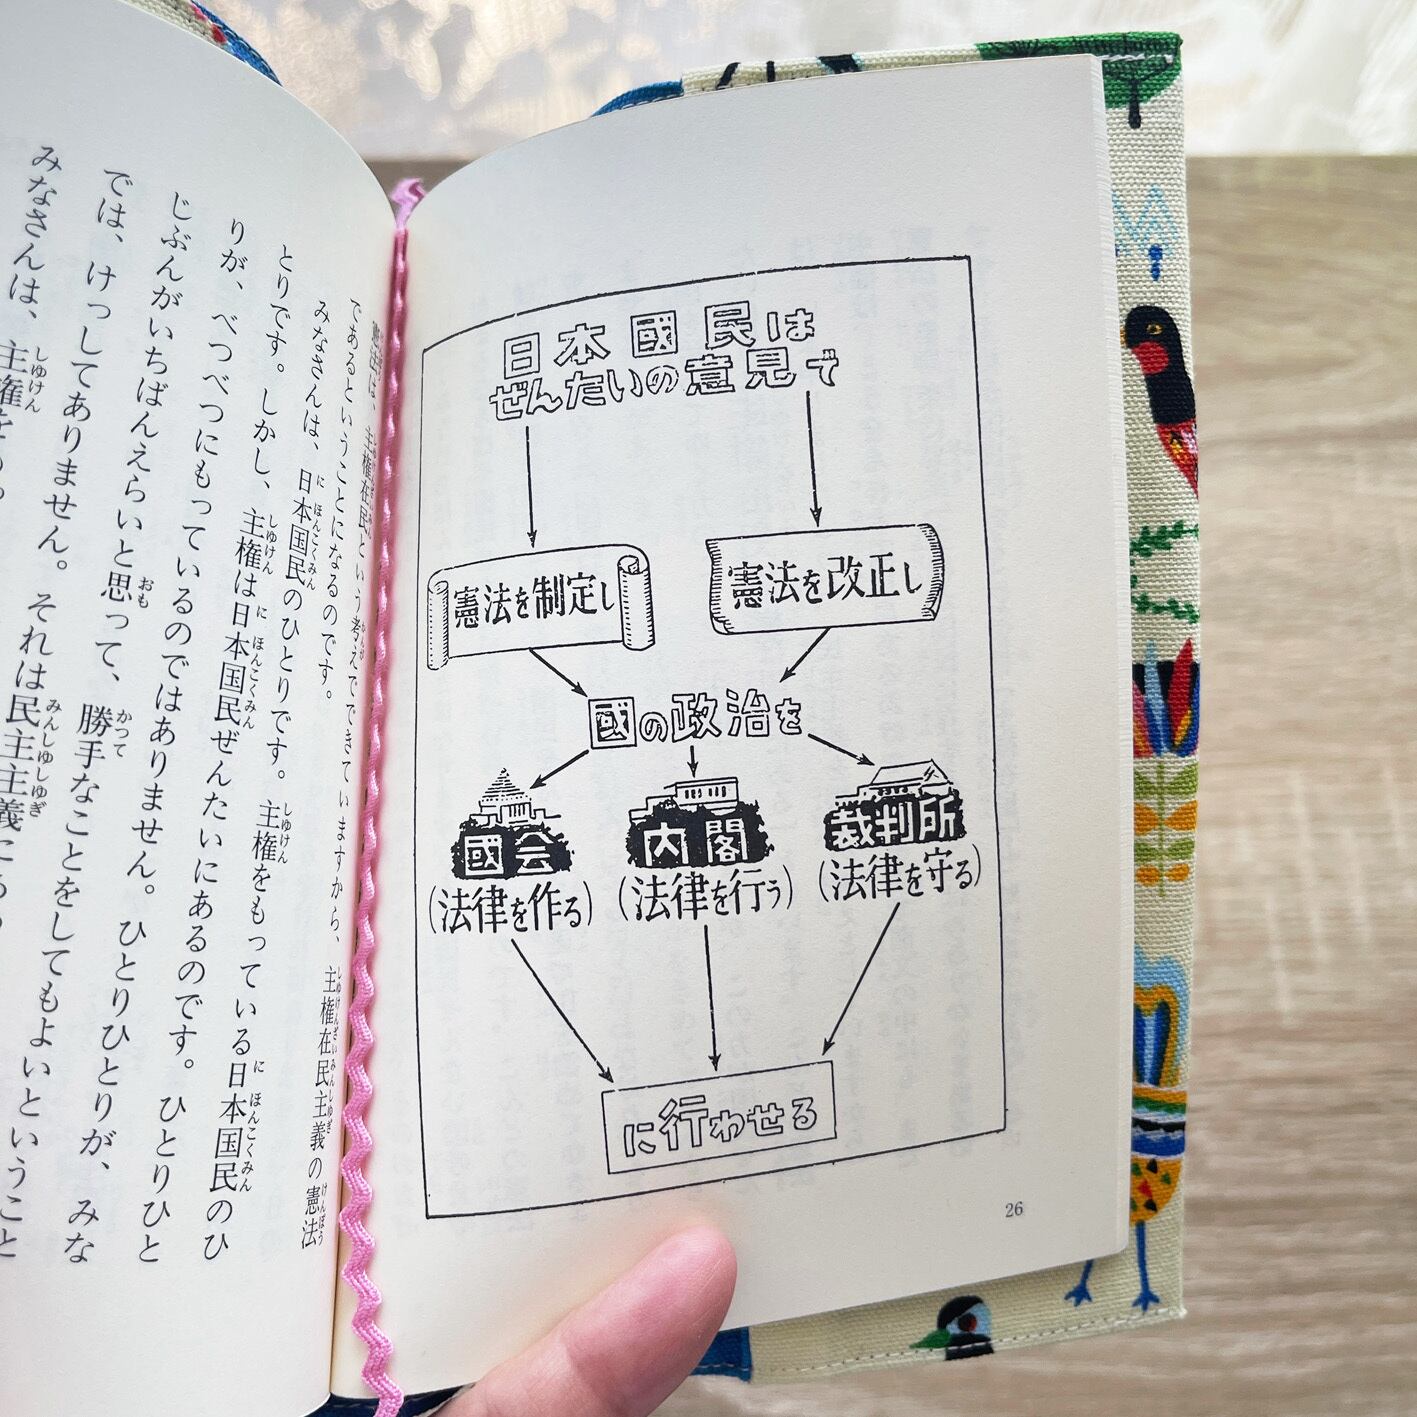 日本國民は
ぜんたいの意見で
憲法を制定し
憲法を改正し
國の政治を
國会
(法律を作る)
内閣
(法律を行う)
裁判所
(法律を守る)
に行わせる
26
憲法は、主権在民という考えでできていますから、主権在民主義の憲法
であるということになるのです。
みなさんは、日本国民のひとりです。主権をもっている日本国民のひ
とりです。しかし、主権は日本国民ぜんたいにあるのです。ひとりひと
りが、べつべつにもっているのではありません。ひとりひとりが、みな
じぶんがいちばんえらいと思って、勝手なことをしてもよいということ
では、けっしてありません。それは民主主義に
みなさんは、主権を